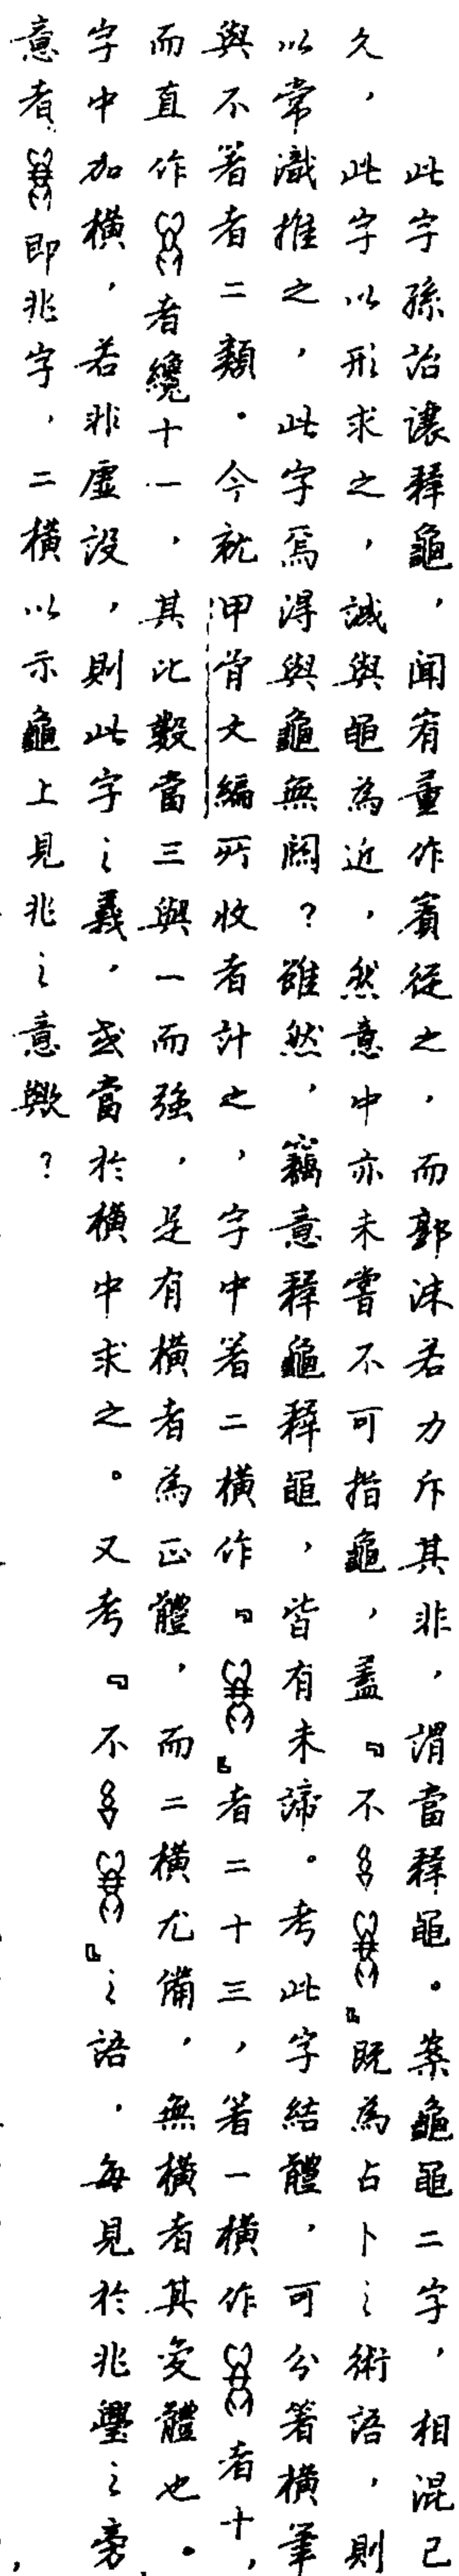 此字孫詒讓釋龜，聞宥董作賓從之，而郭沫若力斥其非，謂當釋黽。案龜黽二字，相混已
久，此字以形求之，誠與黽為近，然意中亦未嘗不可指龜，蓋『不』既為占卜之術語，則
以常識推之，此字焉得與龜無關？雖然，竊意釋龜釋黽，皆有未諦。考此字結體，可分著橫筆
與不著者二類。今就甲骨文編所收者計之，字中著二橫作『』者二十三，著一橫作者十，
而直作者纔十一，其比數當三與一而強，是有橫者為正體，而二橫尤備，無橫者其變體也。
字中加橫，若非虛設，則此字之義，或當於橫中求之。又考『不』之語，每見於兆璺之旁，
意者即兆字，二橫以示龜上見兆之意歟？